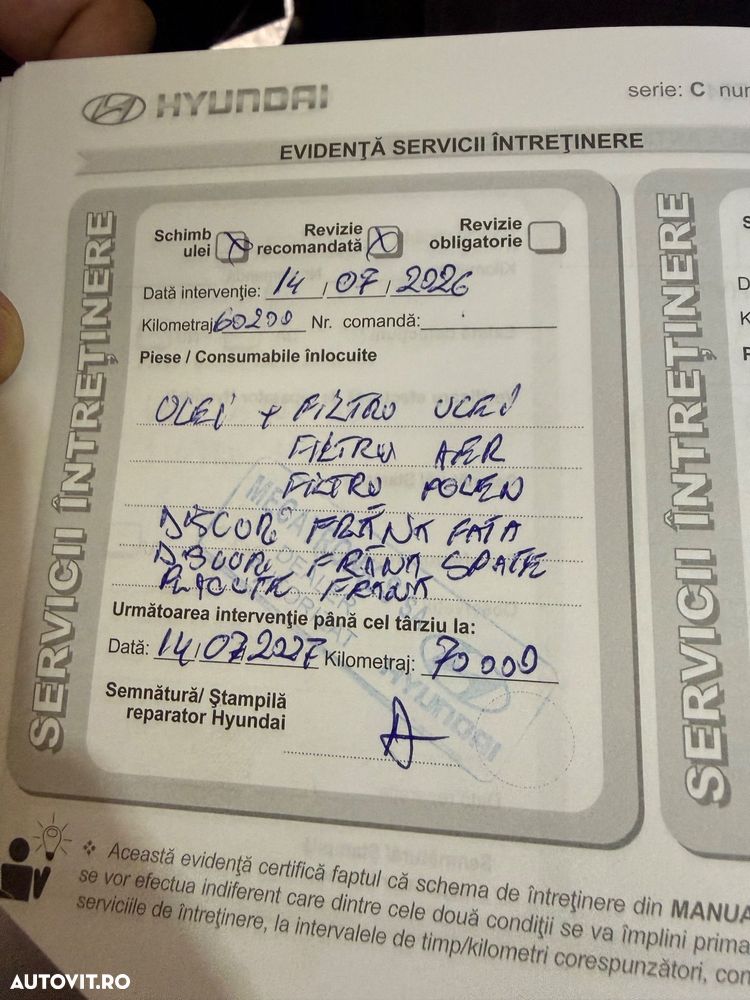 HYUNDAI
serie: C nur
EVIDENŢĂ SERVICII ÎNTREŢINERE
SERVICII ÎNTREŢINERE
Schimb ulei
Revizie recomandată
Revizie obligatorie
Dată intervenţie: 14 / 07 / 2026
Kilometraj 60200 Nr. comandă:
Piese / Consumabile înlocuite
OLEI + FILTRU ULEI
FILTRU AER
FILTRU POLEN
DISCURI FRÂNĂ FAȚA
DISCURI FRÂNĂ SPATE
PLACUTE FRANA
Următoarea intervenţie până cel târziu la:
Dată: 14 / 07 / 2027 Kilometraj: 70 000
Semnătură/ Ştampilă
reparator Hyundai
HYUNDAI
SERVICII ÎNTREŢINERE
❖ Această evidenţă certifică faptul că schema de întreţinere din MANUA
se vor efectua indiferent care dintre cele două condiţii se va împlini prima
serviciile de întreţinere, la intervalele de timp/kilometri corespunzători, con
AUTOVIT.RO